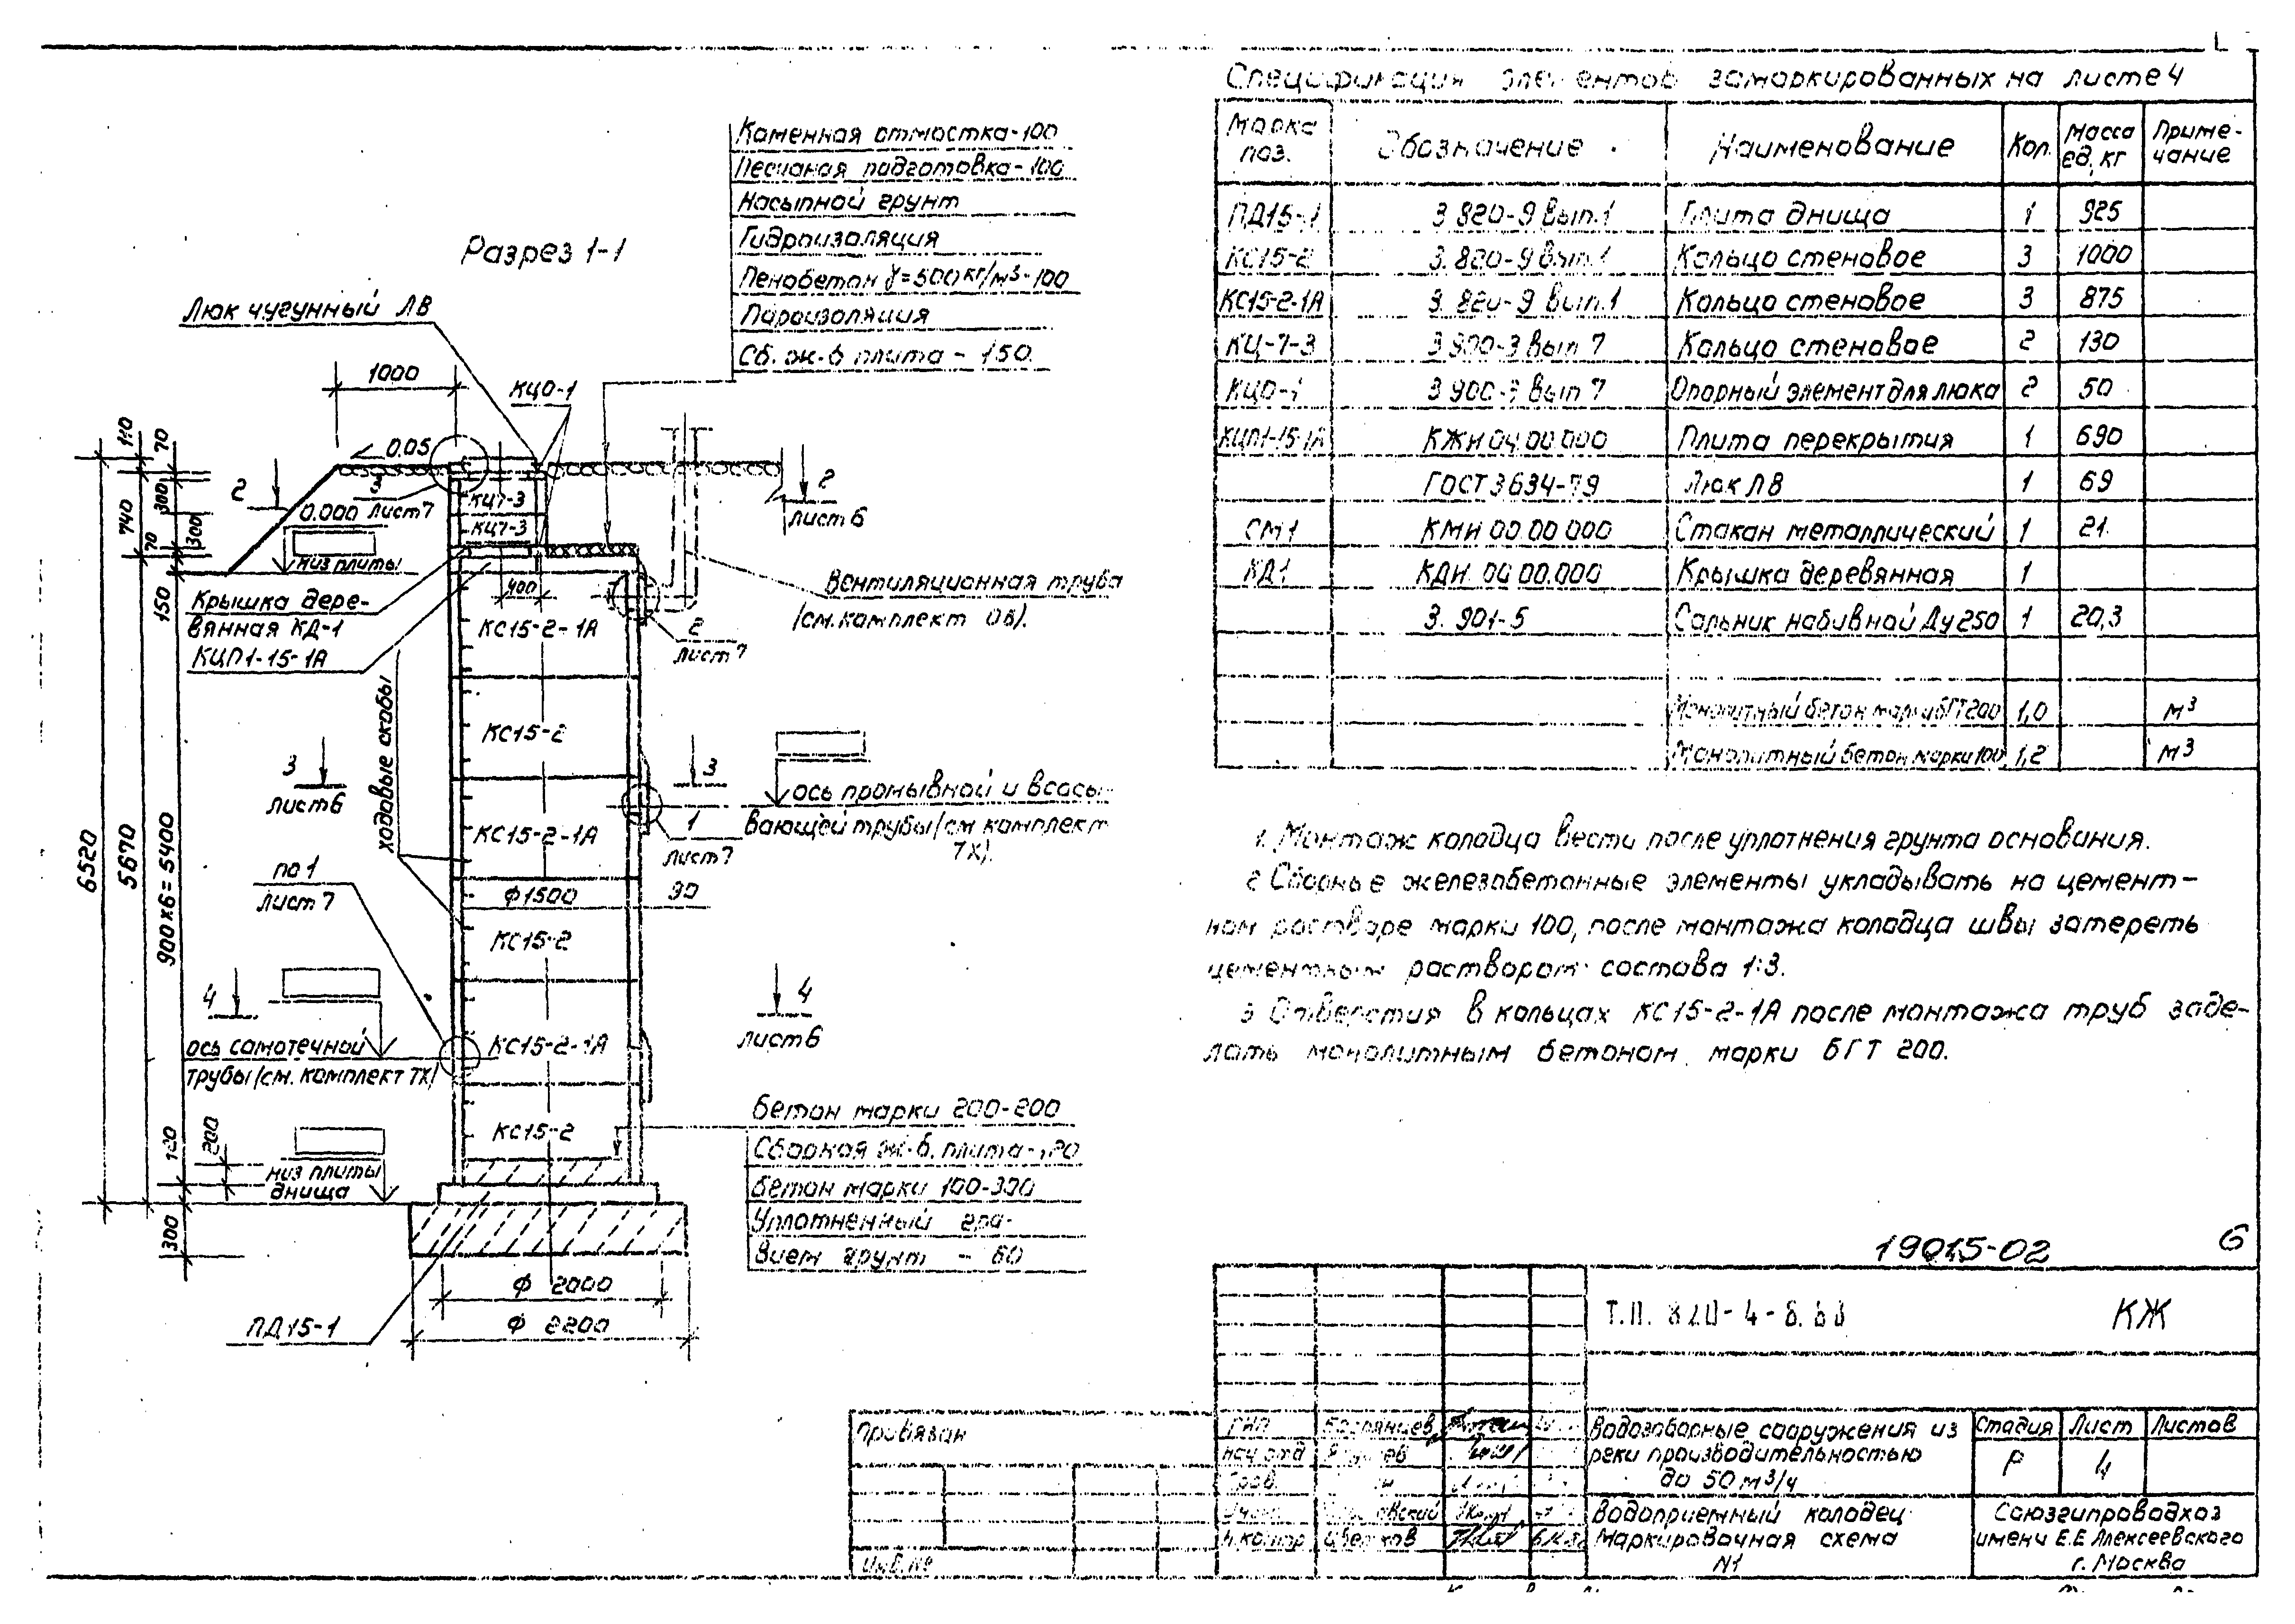 Спецификация элементов замаркированных на листе 4
Марка поз.
Обозначение
Наименование
Кол.
Масса ед, кг
Приме-чание
ПД15-1 3.820-9 вып.1 Плита днища 1 925
КС15-2 3.820-9 вып.1 Кольцо стеновое 3 1000
КС15-2-1А 3.820-9 вып.1 Кольцо стеновое 3 875
КЦ-7-3 3.900-3 вып 7 Кольцо стеновое 2 130
КЦО-1 3.900-3 вып 7 Опорный элемент для люка 2 50
КЦП1-15-1А КЖИ 04.00.000 Плита перекрытия 1 690
ГОСТ 3634-79 Люк ЛВ 1 69
СМ1 КМИ 00.00.000 Стакан металлический 1 21
КД1 КДИ 00.00.000 Крышка деревянная 1
3.901-5 Сальник набивной Ду250 1 20,3
Монолитный бетон марки БГТ200 1,0 м³
Монолитный бетон марки 100 1,2 м³
Разрез 1-1
Каменная отмостка-100
Песчаная подготовка-100
Насыпной грунт
Гидроизоляция
Пенобетон γ=500кг/м³-100
Пароизоляция
Сб. ж-б плита - 150.
Люк чугунный ЛВ
1000
КЦО-1
0.05
110
70
740
300
70
300
150
2
2
лист 6
лист 7
0.000
низ плиты
КЦ7-3
КЦ7-3
400
Вентиляционная труба
(см. комплект ОВ).
Крышка дере-
вянная КД-1
КЦП1-15-1А
КС15-2-1А
2
лист 7
ходовые скобы
КС15-2
3
лист 6
3
ось промывной и всасы-
вающей трубы (см комплект
ТХ).
КС15-2-1А
1
лист 7
6520
5670
900х6=5400
по 1
лист 7
Ф1500
90
КС15-2
4
4
лист 6
ось самотечной
трубы (см. комплект ТХ)
КС15-2-1А
КС15-2
120
200
300
низ плиты
днища
бетон марки 200-200
Сборная ж-б. плита-120
бетон марки 100-300
Уплотненный гра-
вием грунт - 60
Ф 2000
Ф 2200
ПД15-1
1. Монтаж колодца вести после уплотнения грунта основания.
2 Сборные железобетонные элементы укладывать на цемент-
ном растворе марки 100, после монтажа колодца швы затереть
цементным раствором состава 1:3.
3 Отверстия в кольцах КС15-2-1А после монтажа труб заде-
лать монолитным бетоном марки БГТ 200.
19015-02 6
Т.П. 820-4-
КЖ
Привязан
Инв.№
ГИП
Нач отд
Н.контр Цветков
Водозаборные сооружения из
реки производительностью
до 50 м³/ч
Стадия Лист Листов
Р 4
Водоприемный колодец
Маркировочная схема
N1
Союзгипроводхоз
имени Е.Е Алексеевского
г. Москва